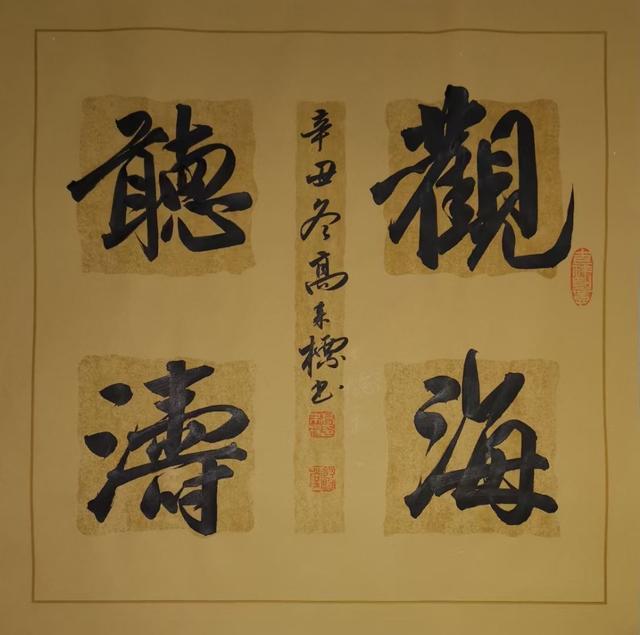 觀海
聽濤
辛丑冬高來標書